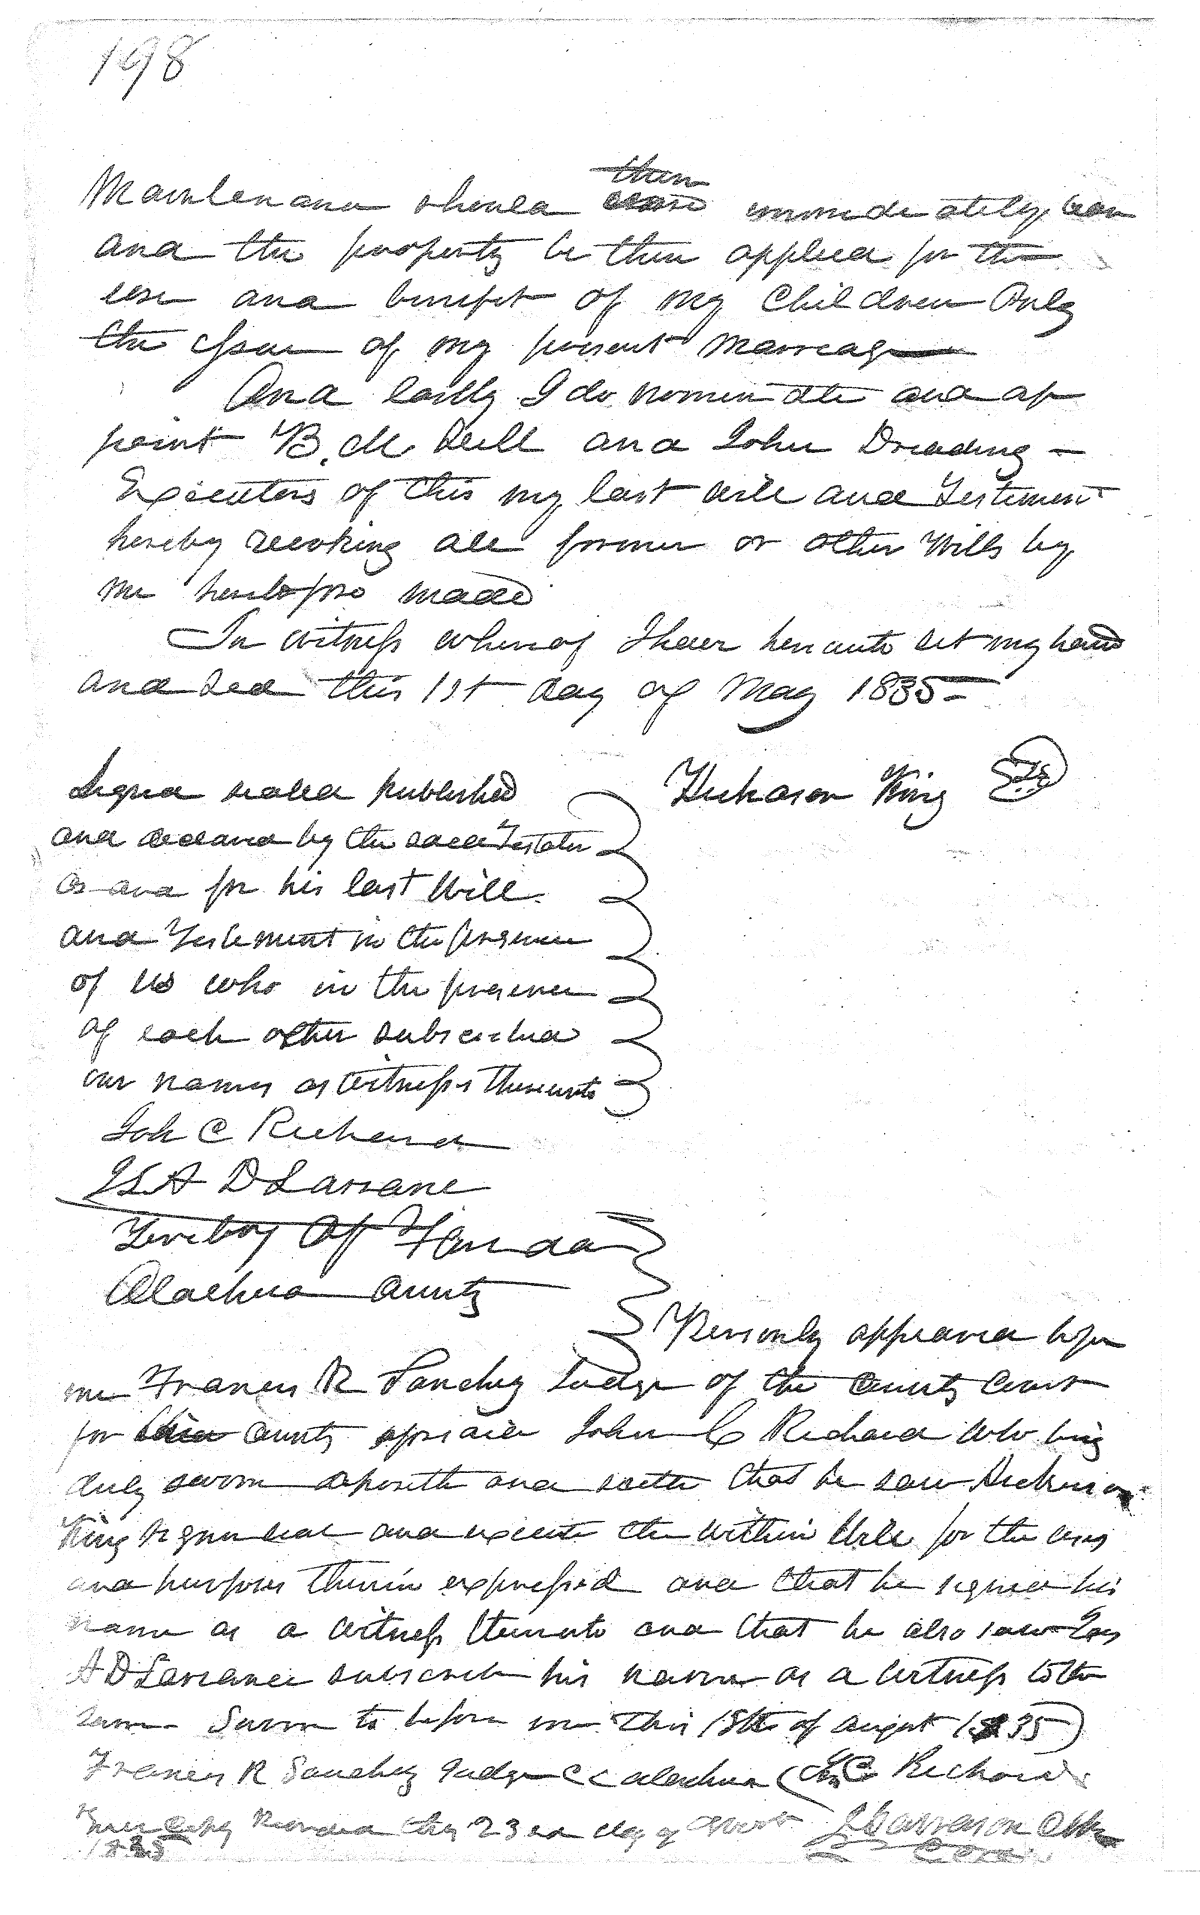 198
Maintenance should then cease immediately
and the property be then applied for the
use and benefit of my Children Only
the Issue of my present Marriage
And lastly I do nominate and ap
point B. M. Dell and John Dreading
Executors of this my last will and Testiment
hereby revoking all former or other Wills by
me heretofore made
In witness whereof I have hereunto set my hand
and seal this 1st day of May 1835
Hickason King
Signed sealed published
and declared by the said Testator
as and for his last Will
and Testement in the presence
of us who in the presence
of each other subscribed
our names as Witness thereunto
Joh C Richard
D Larrane
Teritory Of Florida
Alachua County
Personly appeared before
me Francis R Sanchez Judge of the County Court
for County John C Richard who being
duly sworn deposeth and saeth that he saw Hickason
King sign seal and execute the within Will for the uses
and purposes therein expressed and that he signed his
name as a Witness thereunto and that he also saw
A D Larrance subscribe his name as a Witness to the
same Sworn to before me this 18th of August 1835
Francis R Sanchez Judge C C Alachua Jn C Richard
Recorded this 23rd day of
1835